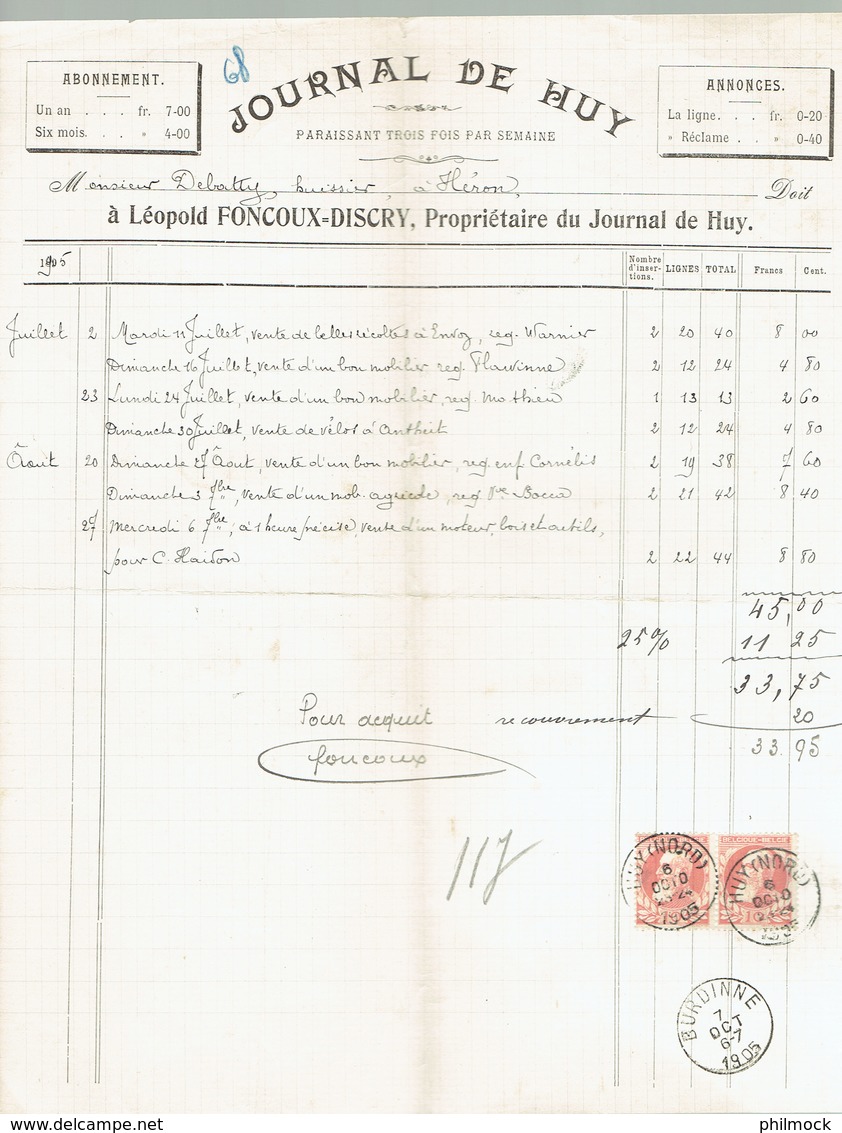 68
JOURNAL DE HUY
PARAISSANT TROIS FOIS PAR SEMAINE
ABONNEMENT.
Un an . . . fr. 7-00
Six mois. . . » 4-00
ANNONCES.
La ligne. . . fr. 0-20
» Réclame . . » 0-40
Monsieur Debatty, huissier, à Héron, Doit
à Léopold FONCOUX=DISCRY, Propriétaire du Journal de Huy.
1905 Nombre d'inser-tions. LIGNES TOTAL Francs Cent.
Juillet 2 Mardi 11 Juillet, vente de belles récoltes à Envoz, req. Warnier 2 20 40 8 00
Dimanche 16 Juillet, vente d'un bon mobilier req. Flawinne 2 12 24 4 80
23 Lundi 24 Juillet, vente d'un bon mobilier, req. Mathieu 1 13 13 2 60
Dimanche 30 Juillet, vente de vélos à Antheit 2 12 24 4 80
Août 20 Dimanche 27 Août, vente d'un bon mobilier, req. enf. Cornélis 2 19 38 7 60
Dimanche 3 7bre, vente d'un mob. agricole, req. Vve 2 21 42 8 40
27 Mercredi 6 7bre, à 1 heure précise, vente d'un moteur, bois et outils,
pour C. Haidon 2 22 44 8 80
45,00
25% 11 25
33,75
Pour acquit recouvrement 20
foncoux 33.95
117
BELGIQUE-BELGIE
HUY (NORD)
6
OCTO
23-24
1905
HUY (NORD)
6
OCTO
1905
BURDINNE
7
OCT
6-7
1905
philmock